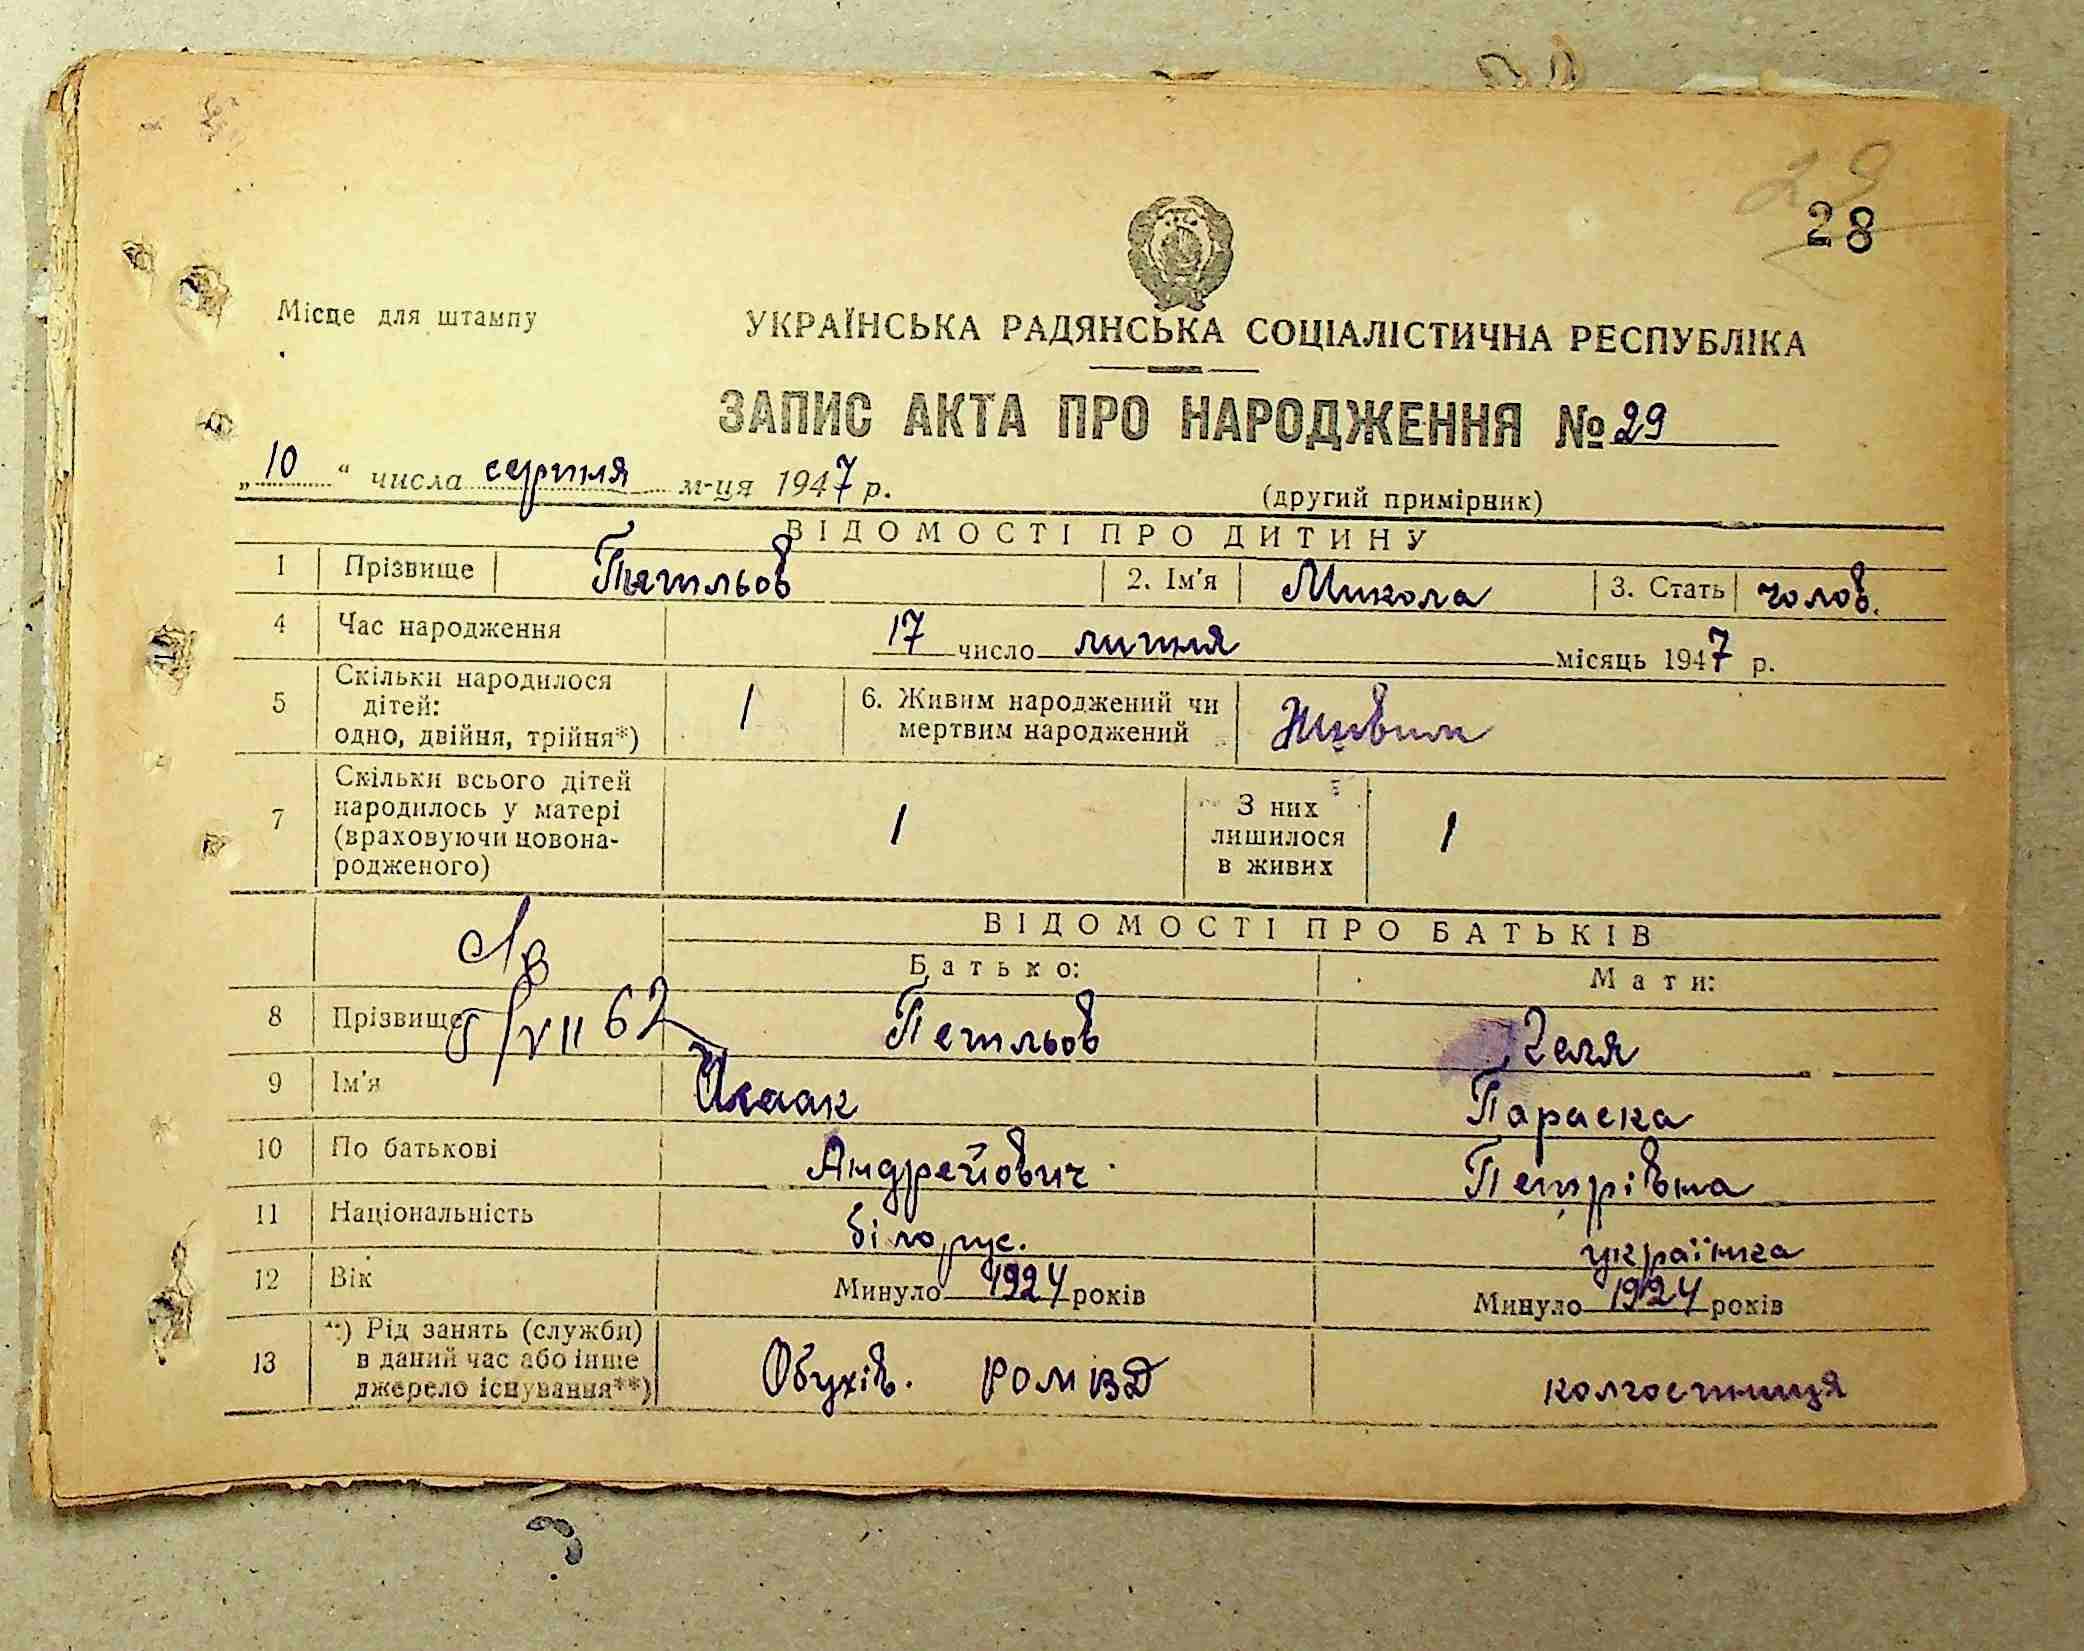 29
28
Місце для штампу
УКРАЇНСЬКА РАДЯНСЬКА СОЦІАЛІСТИЧНА РЕСПУБЛІКА
ЗАПИС АКТА ПРО НАРОДЖЕННЯ № 29
„10“ числа серпня м-ця 1947 р.
(другий примірник)
ВІДОМОСТІ ПРО ДИТИНУ
1 Прізвище 2. Ім'я Микола 3. Стать чолов.
4 Час народження 17 число липня місяць 1947 р.
5 Скільки народилося дітей: одно, двійня, трійня*) 1 6. Живим народжений чи мертвим народжений Живим
7 Скільки всього дітей народилось у матері (враховуючи новонародженого) 1 З них лишилося в живих 1
ВІДОМОСТІ ПРО БАТЬКІВ
Батько: Мати:
VII 62
8 Прізвище
9 Ім'я Ісаак Параска
10 По батькові Андрейович Петрівна
11 Національність білорус. українка
12 Вік Минуло 1924 років Минуло 1924 років
13 **) Рід занять (служби) в даний час або інше джерело існування**) Обухів. РОМВД колгоспниця